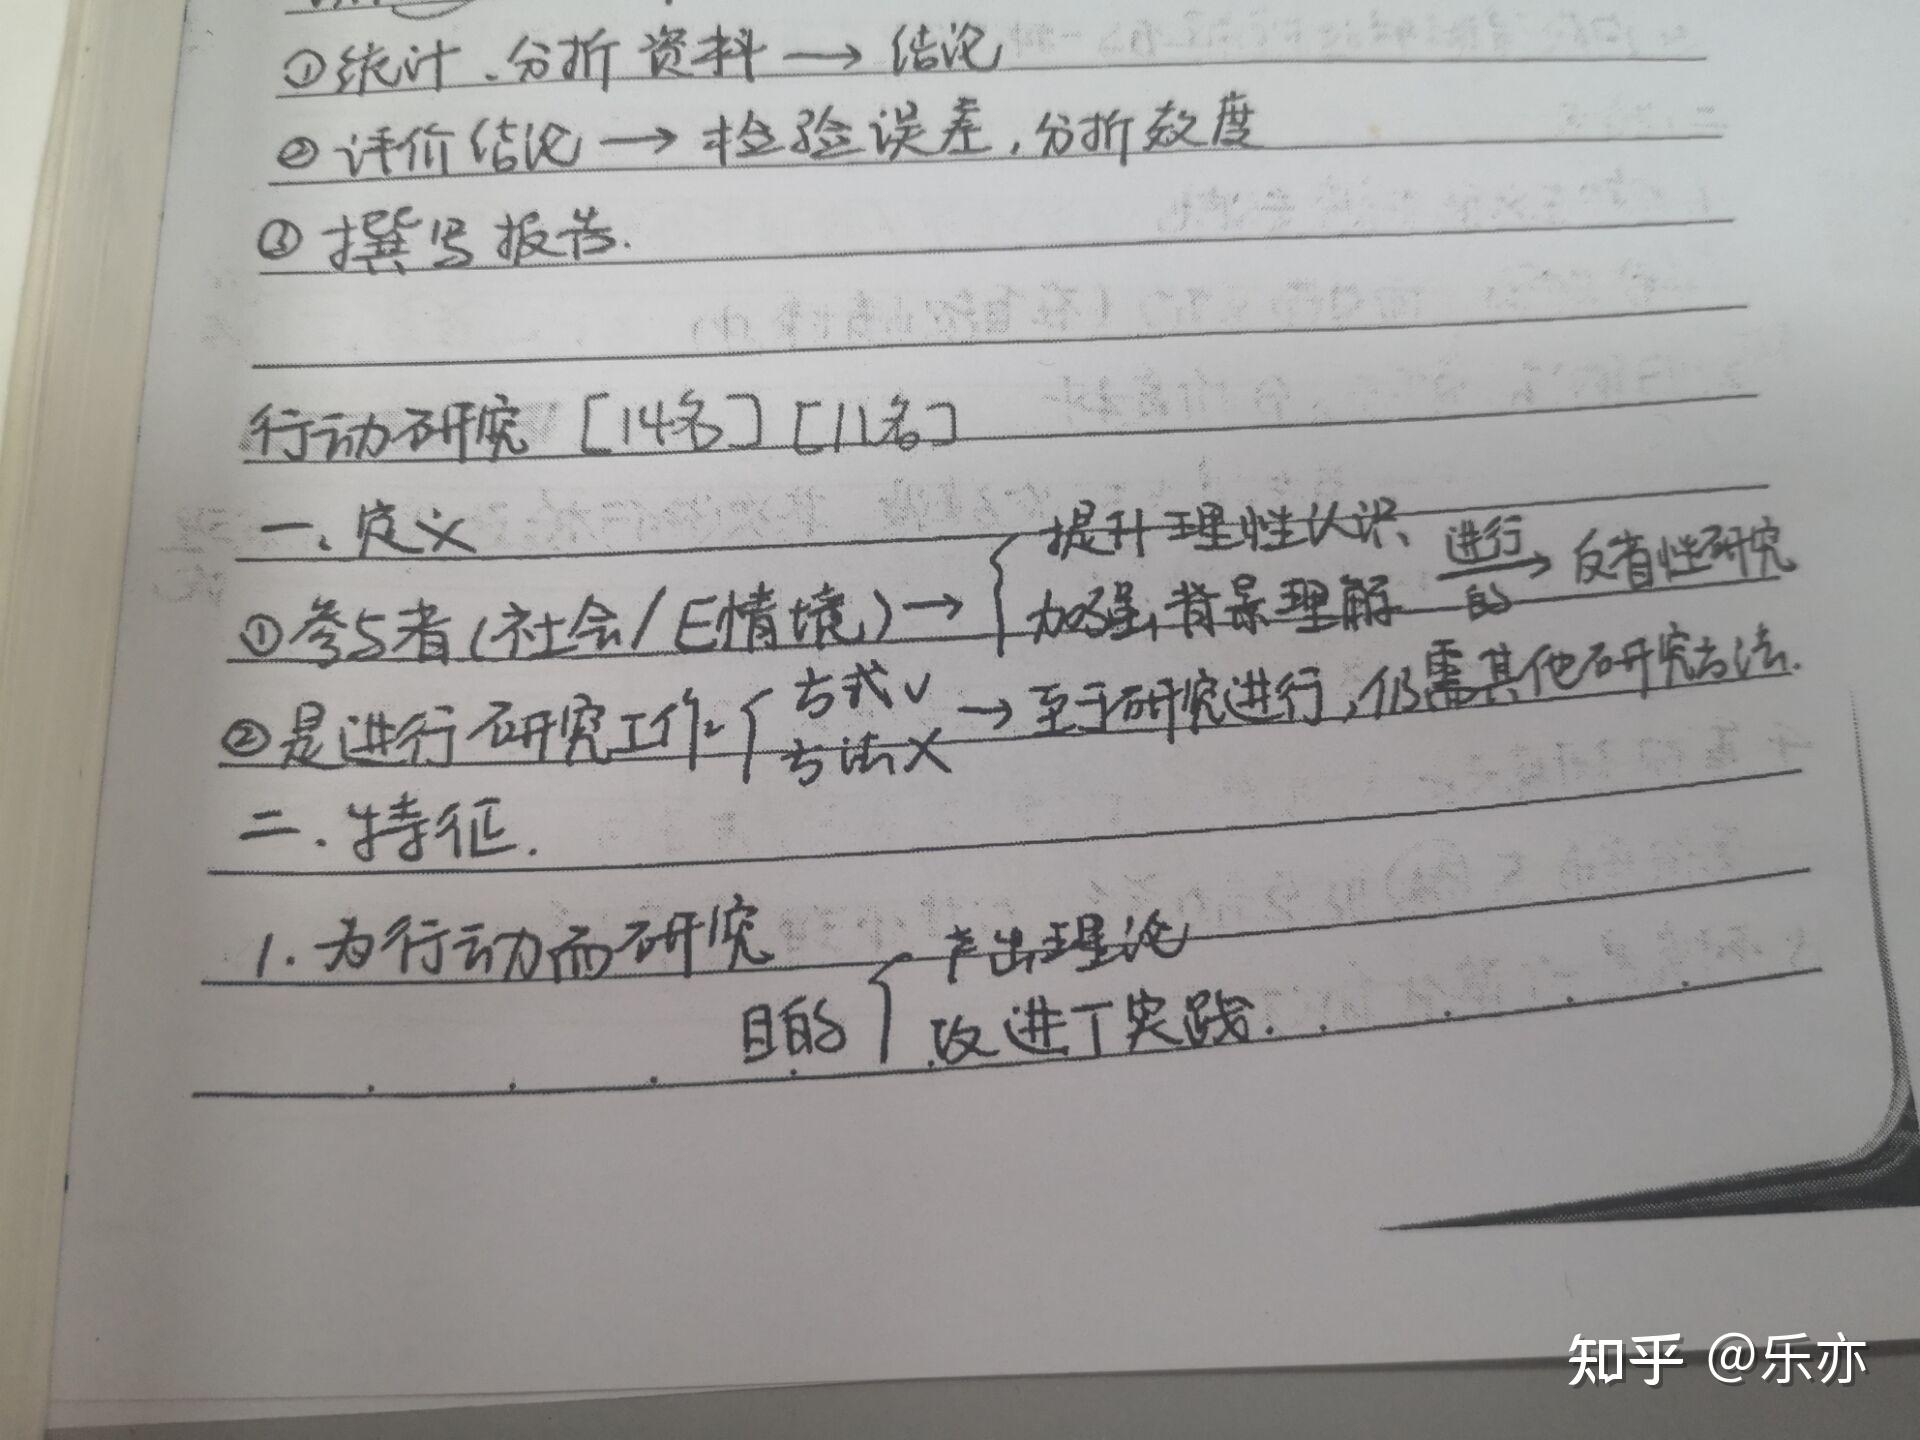 ①统计、分折资料→结论
②评价结论→检验误差,分折效度
③撰写报告.
行动研究 [14名] [11名]
一、定义
①参与者(社会/E情境)→{提升理性认识、加强背景理解 进行的→ 反省性研究
②是进行研究工作{方式√ 方法× →至于研究进行,仍需其他研究方法.
二.特征.
1.为行动而研究
目的{产出理论
改进T实践.
知乎 @乐亦